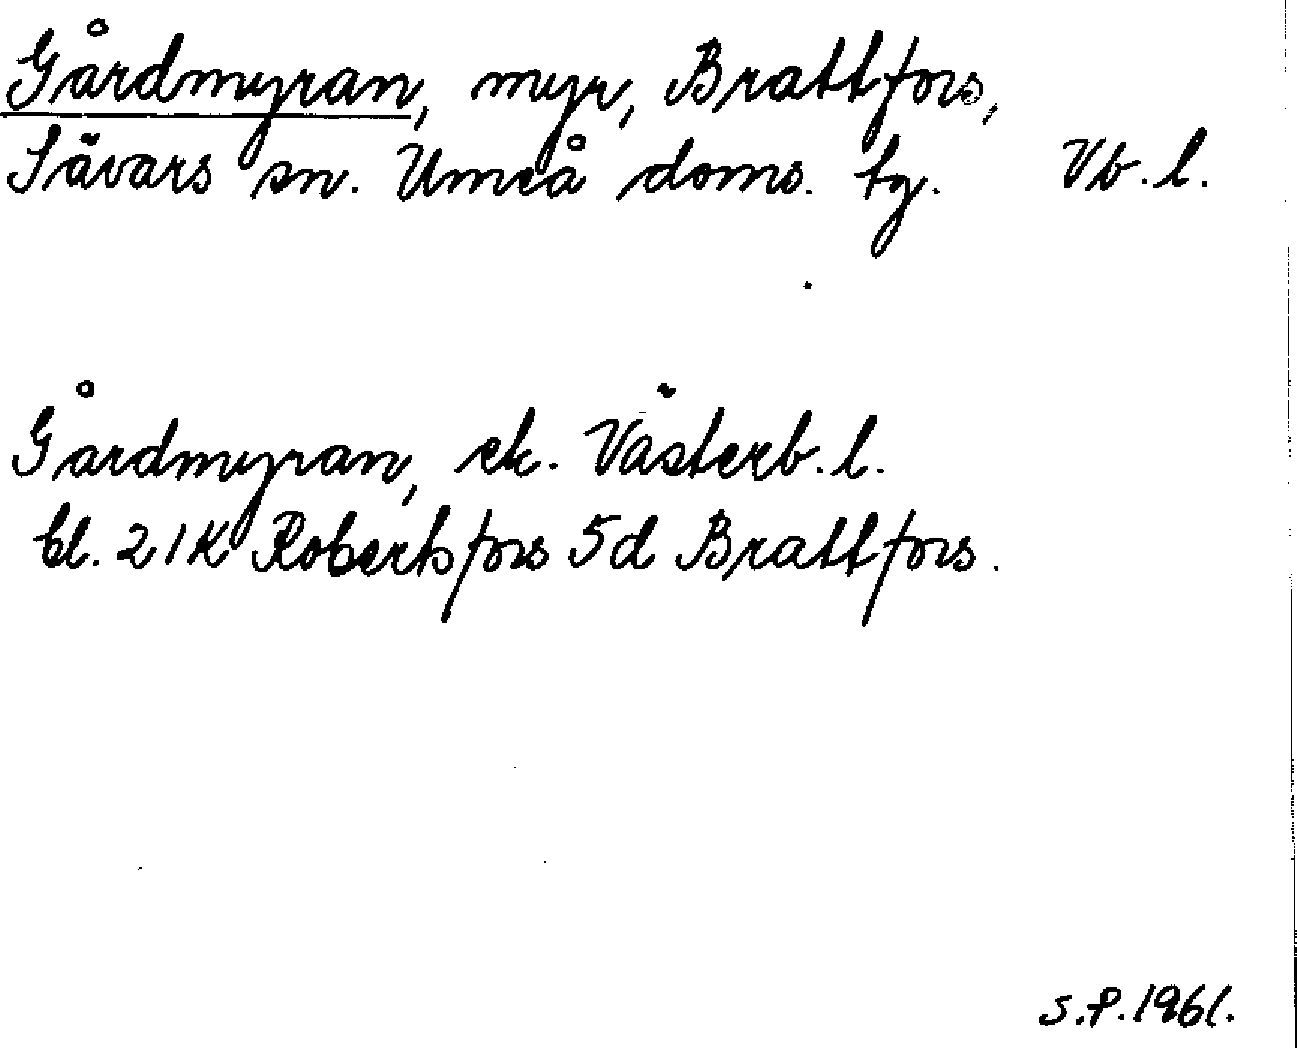 Gårdmyran, myr, Brattfors,
Sävars sn. Umeå doms. tg. Vb. l.
Gårdmyran, ek. Västerb. l.
bl. 21K Robertsfors 5d Brattfors.
S.P. 1961.